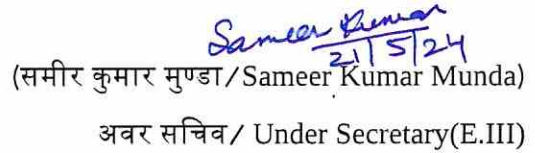 Sameer Kumar
21/5/24
(समीर कुमार मुण्डा/Sameer Kumar Munda)
अवर सचिव/ Under Secretary(E.III)